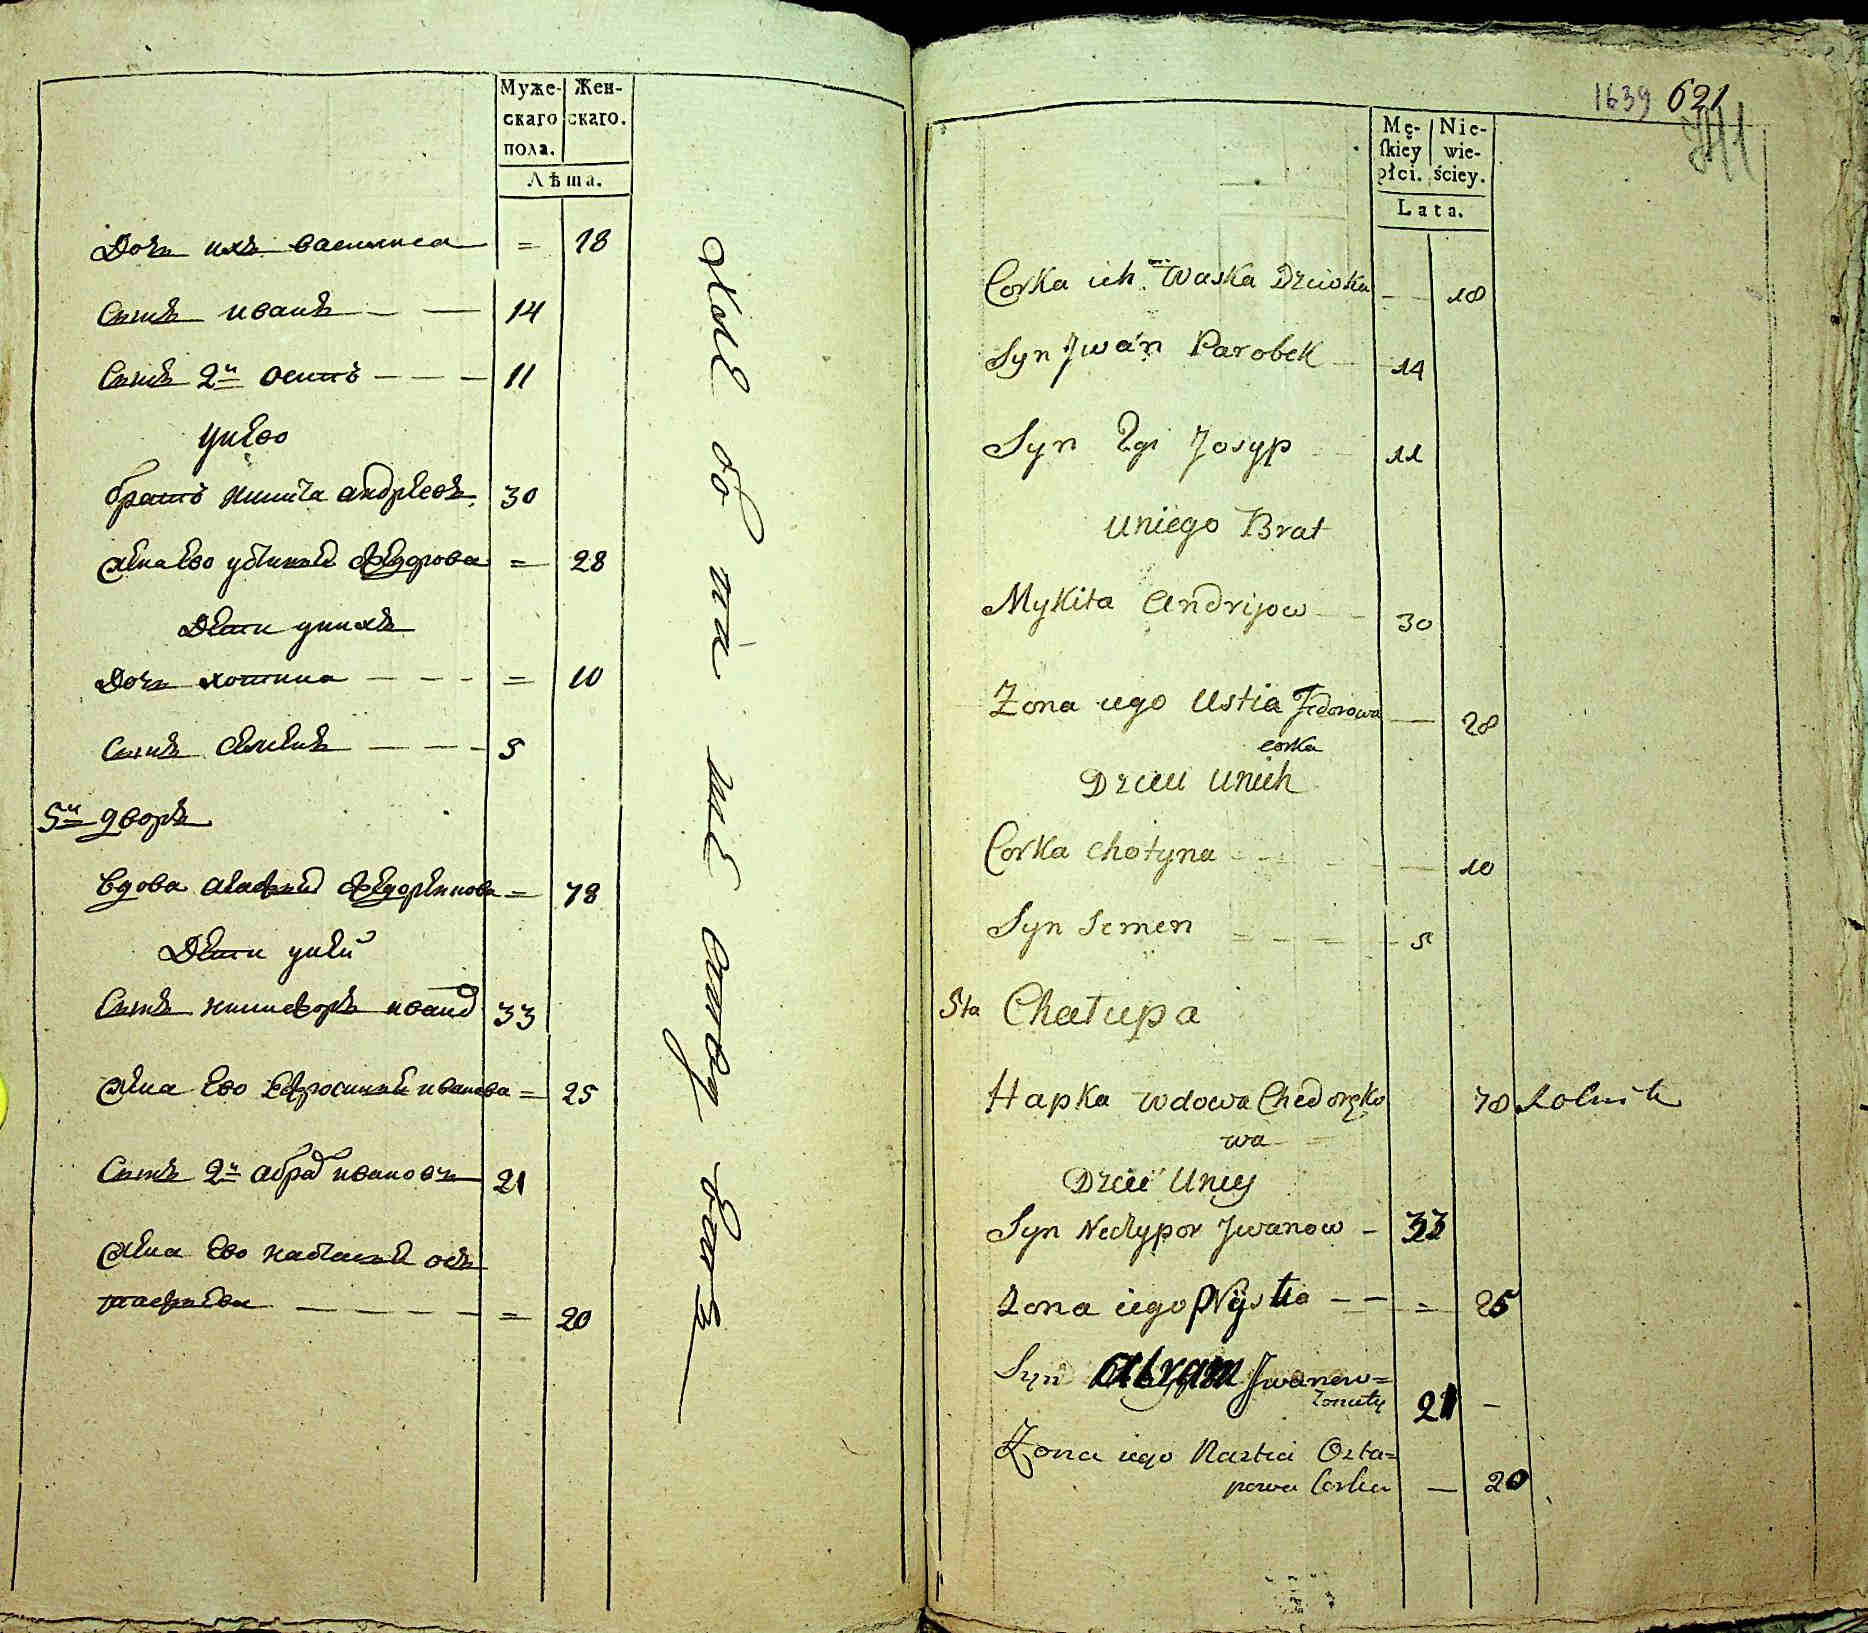 Муже- Жен-
скаго скаго.
пола.
Лѣта.
Дочь ихъ василиса = 18
Сынъ иванъ 14
Сынъ 2й осипъ 11
унево
братъ никита андреевъ 30
жена ево устиния федорова = 28
Дети унихъ
Дочь хотина = 10
Сынъ семенъ 5
5й дворъ
вдова агафия федоренкова = 78
Дети уней
Сынъ никифоръ иванов 33
жена ево ефросиния иванова = 25
Сынъ 2й абрам ивановъ 21
жена ево настасия ос
тафиева = 20
1639 621
Mę- Nie-
skiey wie-
płci. ściey.
Lata.
Corka ich Waska Dziwka 18
Syn Jwan Parobek 14
Syn 2gi Josyp 11
uniego Brat
Mykita Andrijow 30
Zona iego Ustia Fedorowa 28
corka
Dzieci Unich
Corka Chotyna 10
Syn Semen 5
5ta Chałupa
Hapka wdowa Chedoręko 78 Rolnik
wa
Dzieci Uniey
Syn Neczypor Jwanow 33
Zona iego Prysttia = 25
Syn Abram Jwanow=
żonaty 21 –
Zona iego Nastia Osta=
powa Corka – 20